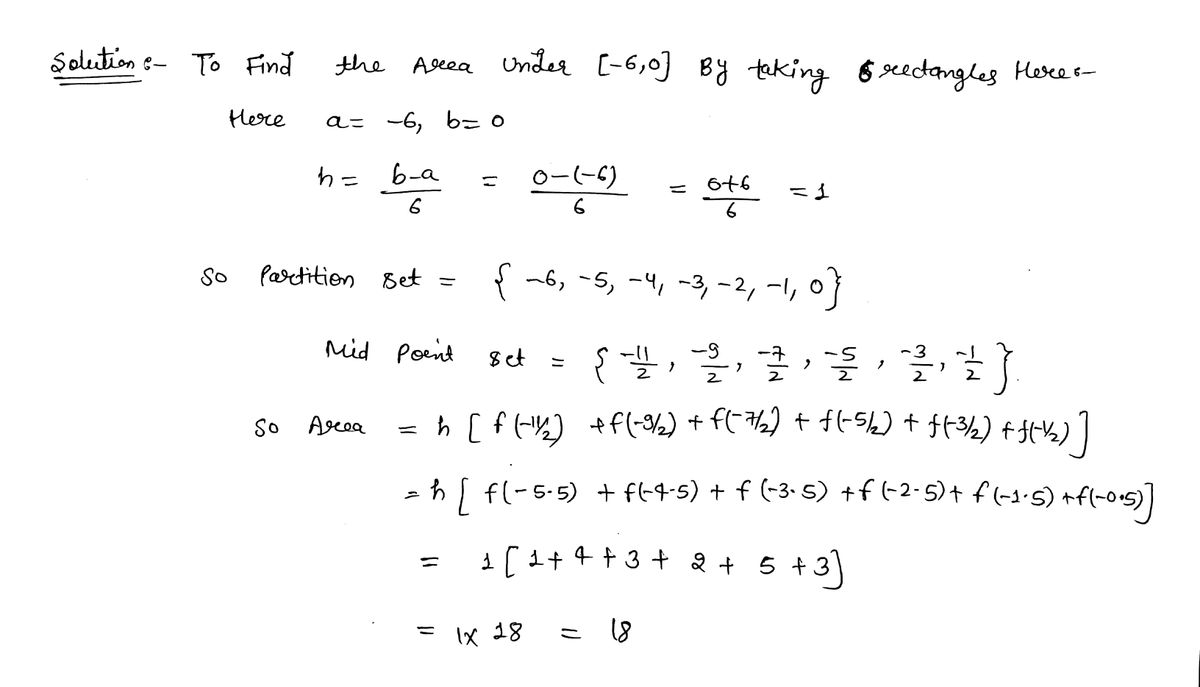 Solution :- To Find the Area Under [-6,0] By taking 6 rectangles Here :-
Here a= -6, b= 0
h = b-a/6 = 0-(-6)/6 = 0+6/6 = 1
So Partition Set = { -6, -5, -4, -3, -2, -1, 0}
Mid Point Set = { -11/2, -9/2, -7/2, -5/2, -3/2, -1/2 }.
So Area = h [ f(-11/2) + f(-9/2) + f(-7/2) + f(-5/2) + f(-3/2) + f(-1/2) ]
= h [ f(-5.5) + f(-4.5) + f(-3.5) + f(-2.5) + f(-1.5) + f(-0.5)]
= 1 [ 1 + 4 + 3 + 2 + 5 + 3]
= 1x 18 = 18